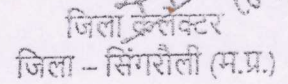 जिला कलेक्टर
जिला – सिंगरौली (म.प्र.)